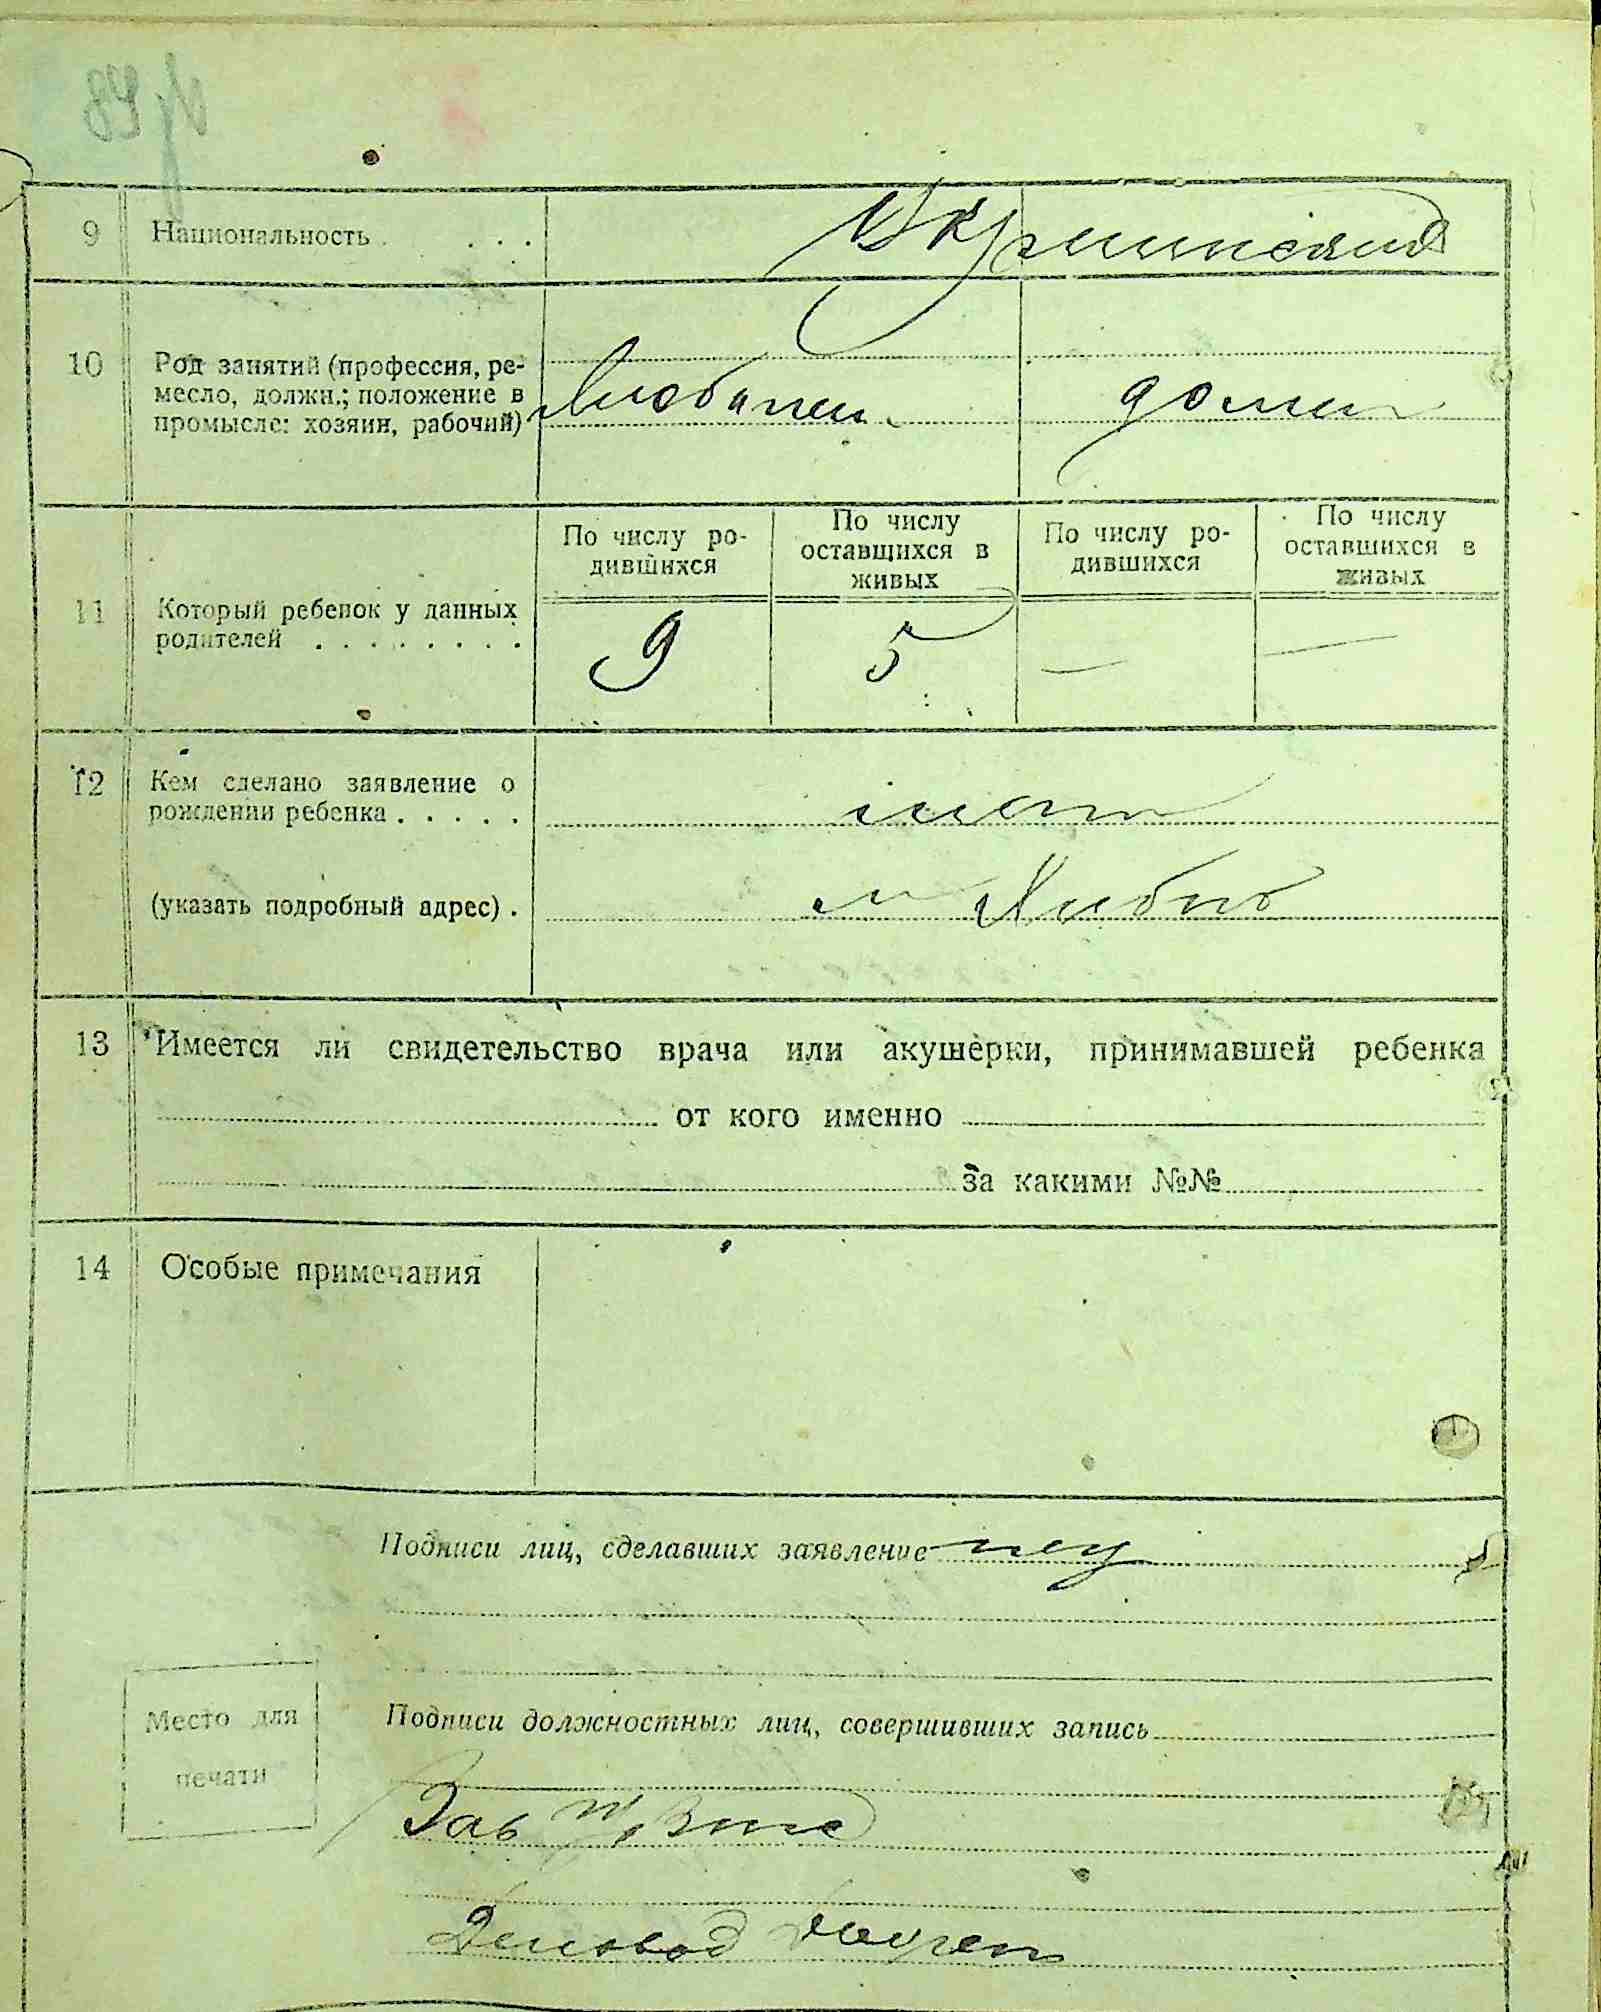 9 Национальность . . . . Украинская
10 Род занятий (профессия, ре-
месло, должн.; положение в
промысле: хозяин, рабочий)
домаш
По числу ро-
дившихся
По числу
оставшихся в
живых
По числу ро-
дившихся
По числу
оставшихся в
живых
11 Который ребенок у данных
родителей . . . . . . . .
9 5 — —
12 Кем сделано заявление о
рождении ребенка . . . . .
мать
(указать подробный адрес) .
13 Имеется ли свидетельство врача или акушерки, принимавшей ребенка
от кого именно
за какими №№
14 Особые примечания
Подписи лиц, сделавших заявление
Место для
печати
Подписи должностных лиц, совершивших запись
Зав
Деловод